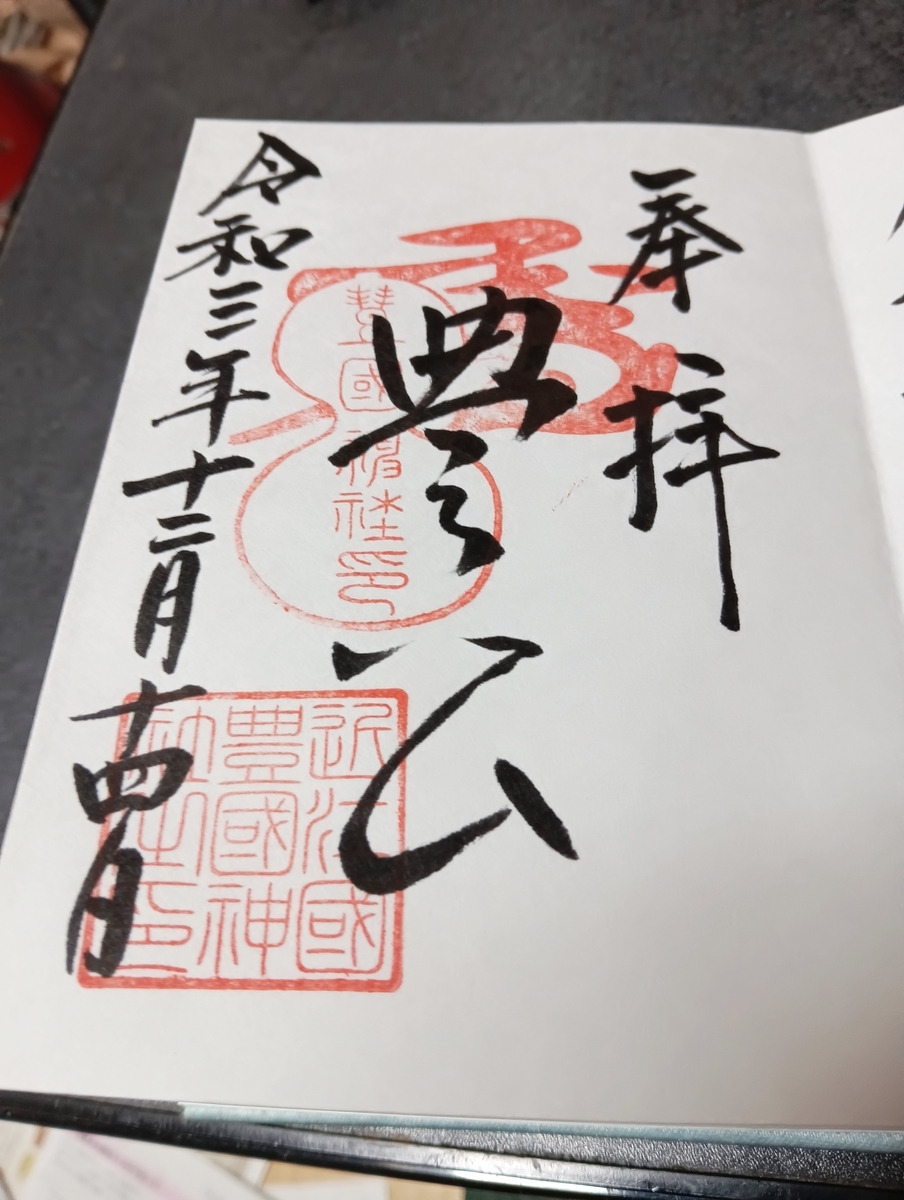 奉拝
豊公
豊國神社印
近江國
豊國神
社之印
令和三年十二月十四日